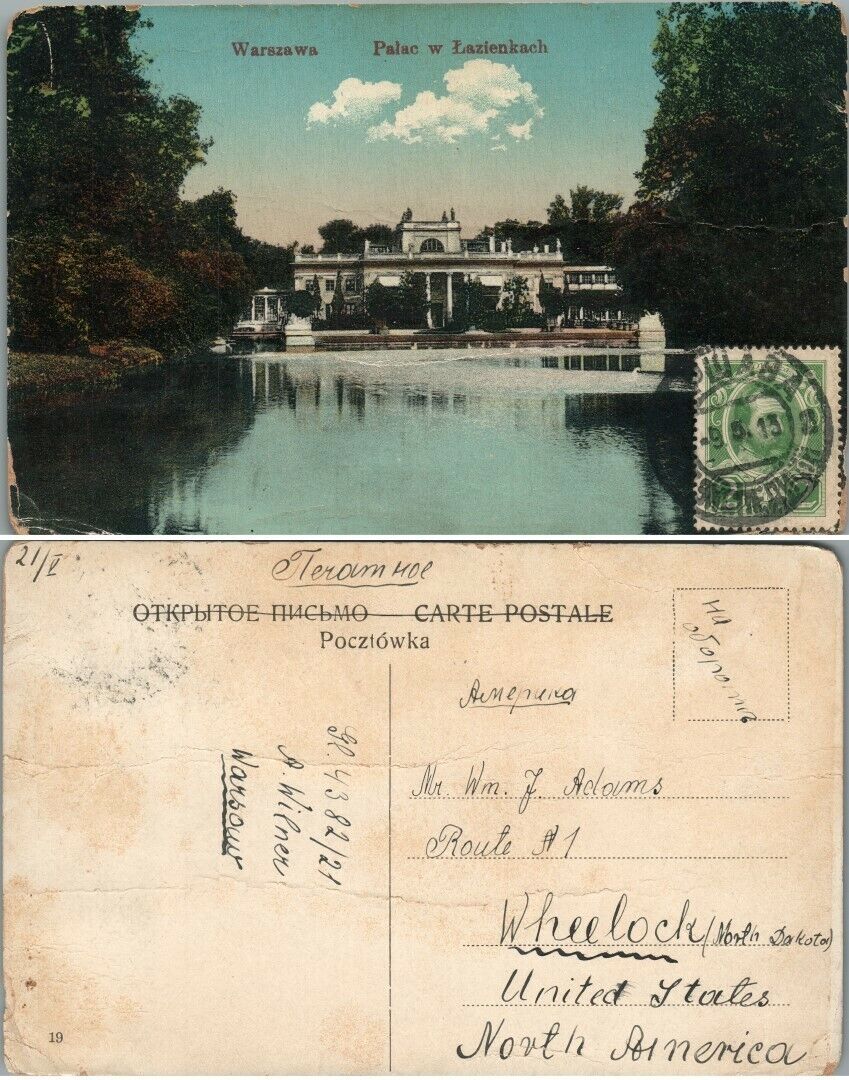 Warszawa Pałac w Łazienkach
ВАРШАВА
-9.5.13
21/V
Печатное
ОТКРЫТОЕ ПИСЬМО — CARTE POSTALE
Pocztówka
на
обороте
Америка
Mr. Wm. J. Adams
Route # 1
Wheelock (North Dakota)
United States
North America
4382/21
A. Wilner
Warsaw
19